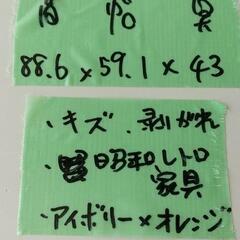 88.6 × 59.1 × 43
・キズ、剥がれ
・昭和レトロ
家具
・アイボリー×オレンジ